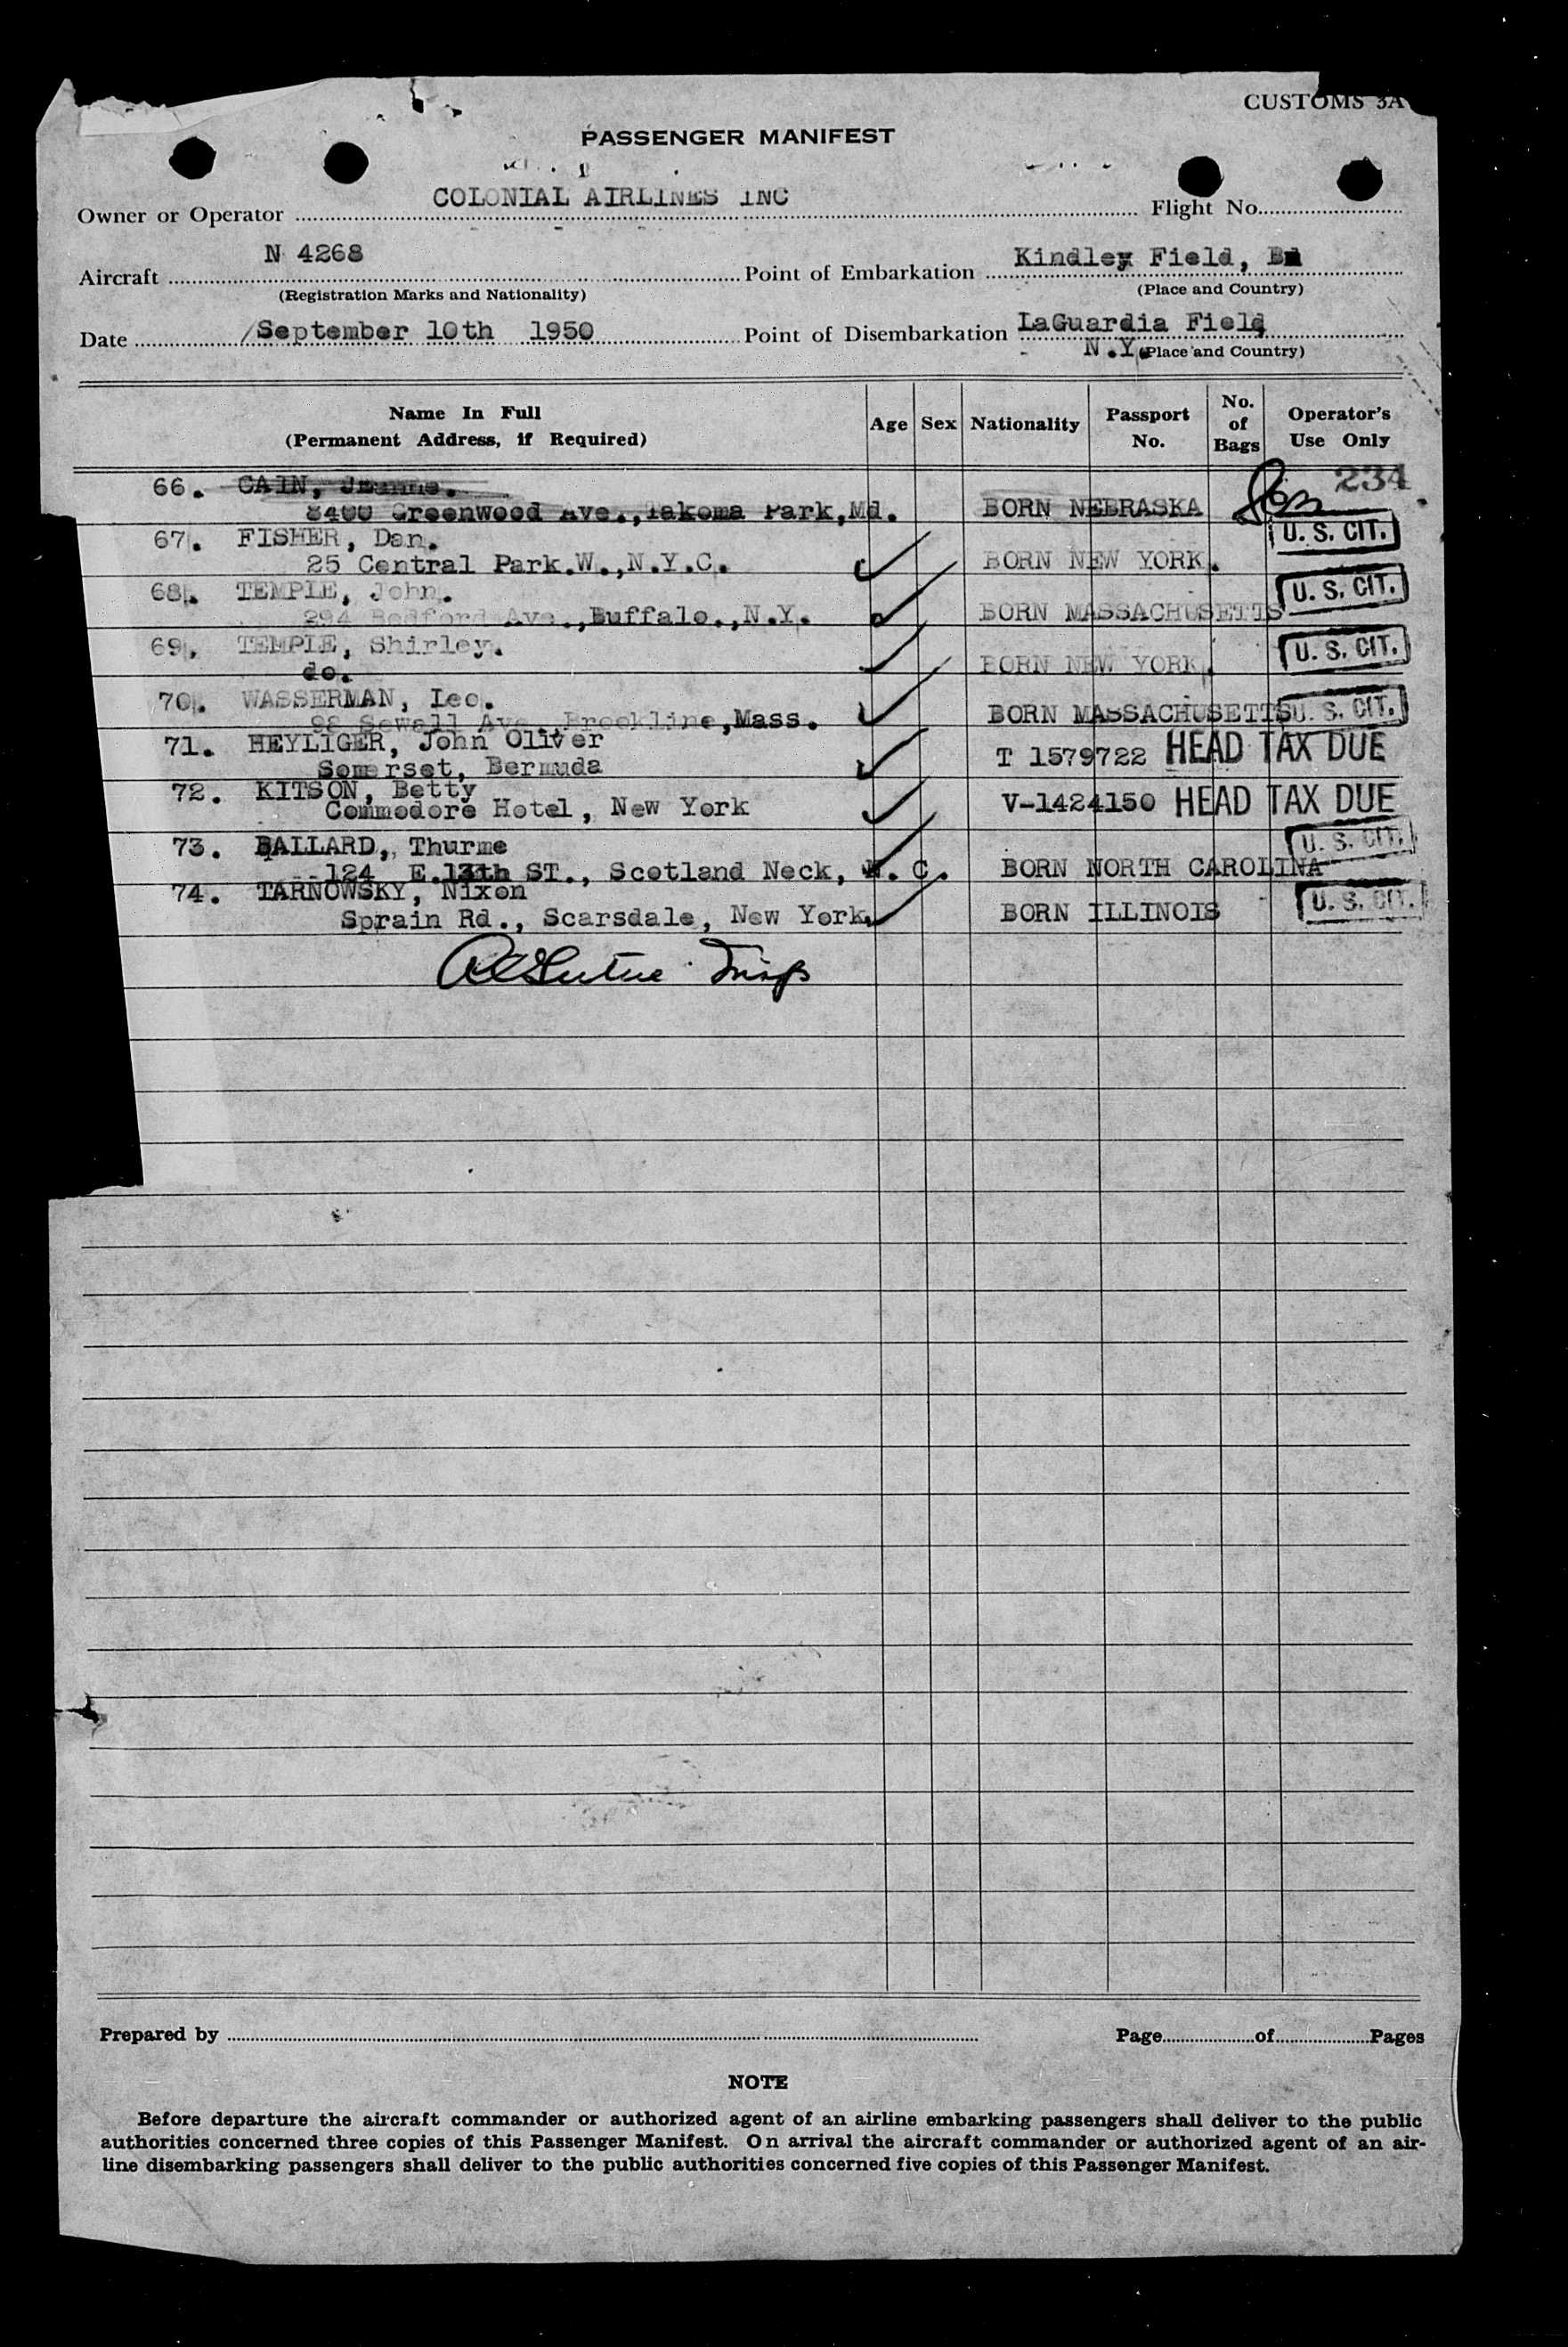 CUSTOMS 3A
PASSENGER MANIFEST
Owner or Operator COLONIAL AIRLINES INC Flight No.
Aircraft N 4268 Point of Embarkation Kindley Field, Bd
(Registration Marks and Nationality) (Place and Country)
Date September 10th 1950 Point of Disembarkation LaGuardia Field
N.Y. (Place and Country)
Name In Full (Permanent Address, if Required) Age Sex Nationality Passport No. No. of Bags Operator's Use Only
234
66. CAIN,
8400 Greenwood Ave., Takoma Park, Md. BORN NEBRASKA
67. FISHER, Dan. U. S. CIT.
25 Central Park.W., N.Y.C. BORN NEW YORK.
68. TEMPLE, John. U. S. CIT.
294 Bedford Ave., Buffalo., N.Y. BORN MASSACHUSETTS
69. TEMPLE, Shirley. U. S. CIT.
do. BORN NEW YORK.
70. WASSERMAN, Leo. U. S. CIT.
98 Sewall Ave., Brookline, Mass. BORN MASSACHUSETTS
71. HEYLIGER, John Oliver
Somerset, Bermuda T 1579722 HEAD TAX DUE
72. KITSON, Betty
Commodore Hotel, New York V-1424150 HEAD TAX DUE
73. BALLARD, Thurme U. S. CIT.
124 E. 13th ST., Scotland Neck, N. C. BORN NORTH CAROLINA
74. TARNOWSKY, Nixon U. S. CIT.
Sprain Rd., Scarsdale, New York. BORN ILLINOIS
Prepared by Page of Pages
NOTE
Before departure the aircraft commander or authorized agent of an airline embarking passengers shall deliver to the public
authorities concerned three copies of this Passenger Manifest. On arrival the aircraft commander or authorized agent of an air-
line disembarking passengers shall deliver to the public authorities concerned five copies of this Passenger Manifest.